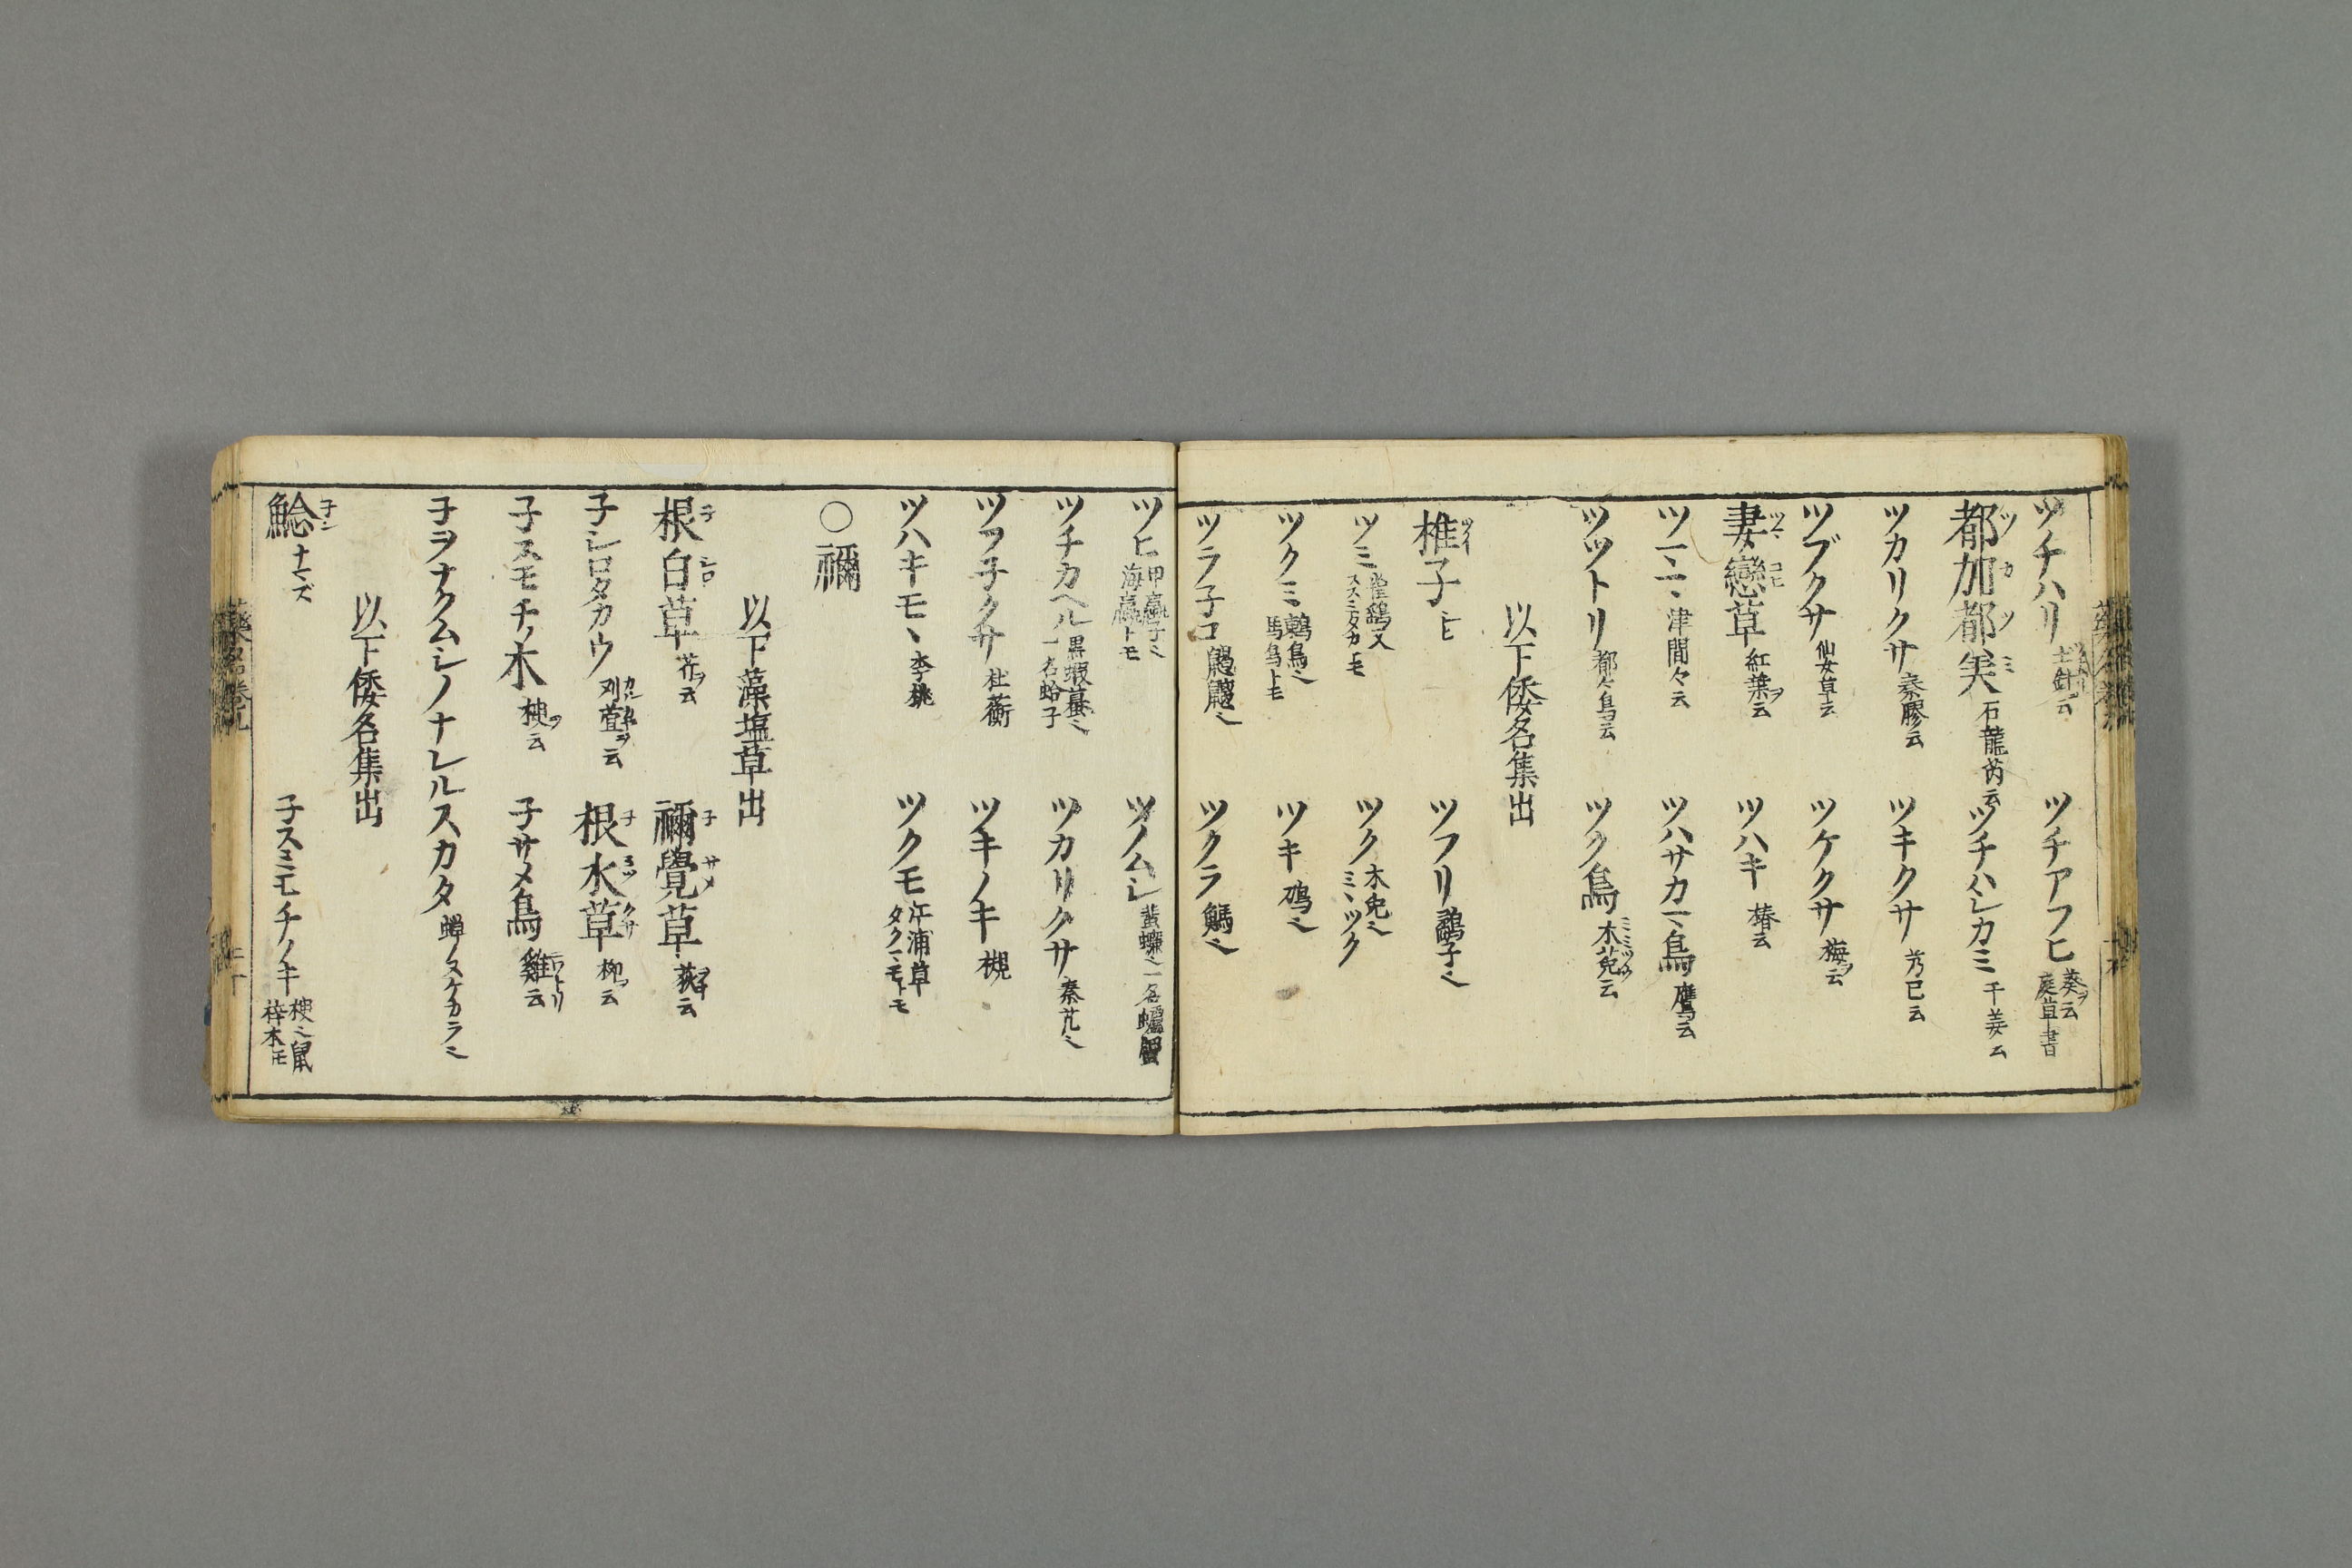 ツチハリ 土針云
ツチアフヒ 葵ヲ云 庭草書
都加都美 ツカツミ 石龍芮云
ツチハシカミ 干姜云
ツカリクサ 秦膠云
ツキクサ 云
ツブクサ 仙女草云
ツケクサ 梅ヲ云
妻戀草 ツマコヒ 紅葉ヲ云
ツハキ 椿云
ツマヽ 津間々云
ツハサカマ鳥 鷹云
ツツトリ 都々鳥云
ツク鳥 木菟云 ミミツク
以下倭名集出
椎子 ツイ シヒ
ツフリ 鷉子也
ツミ 雀鷂又 スヽミタカ モ
ツク 木兎也 ミヽツク
ツクミ 鶫鳥也 馬鳥トモ
ツキ 鴇也
ツラ子コ
ツクラ
ツヒ 甲蠃子也 海蠃トモ
ツノムシ 一名
ツチカヘル 黒蝦蟇也 一名蛤子
ツカリクサ 秦艽也
ツフ子クサ 杜蘅
ツキノキ 槻
ツハキモヽ 李桃
ツクモ 江浦草 タクマモトモ
〇禰
以下藻塩草出
根白草 子シロ 芹ヲ云
禰覺草 子サメ 荻云
子シロタカウ 刈萱ヲ云
根水草 子ミツクサ 柳ヲ云
子スモチノ木 楰ヲ云
子サメ鳥 雞云 ニワトリ
子ヲナクムシノナレルスカタ 蝉ノヌケカラ也
以下倭名集出
鯰 子ン ナマズ
子スミモチノキ 楰也 鼠梓木モ